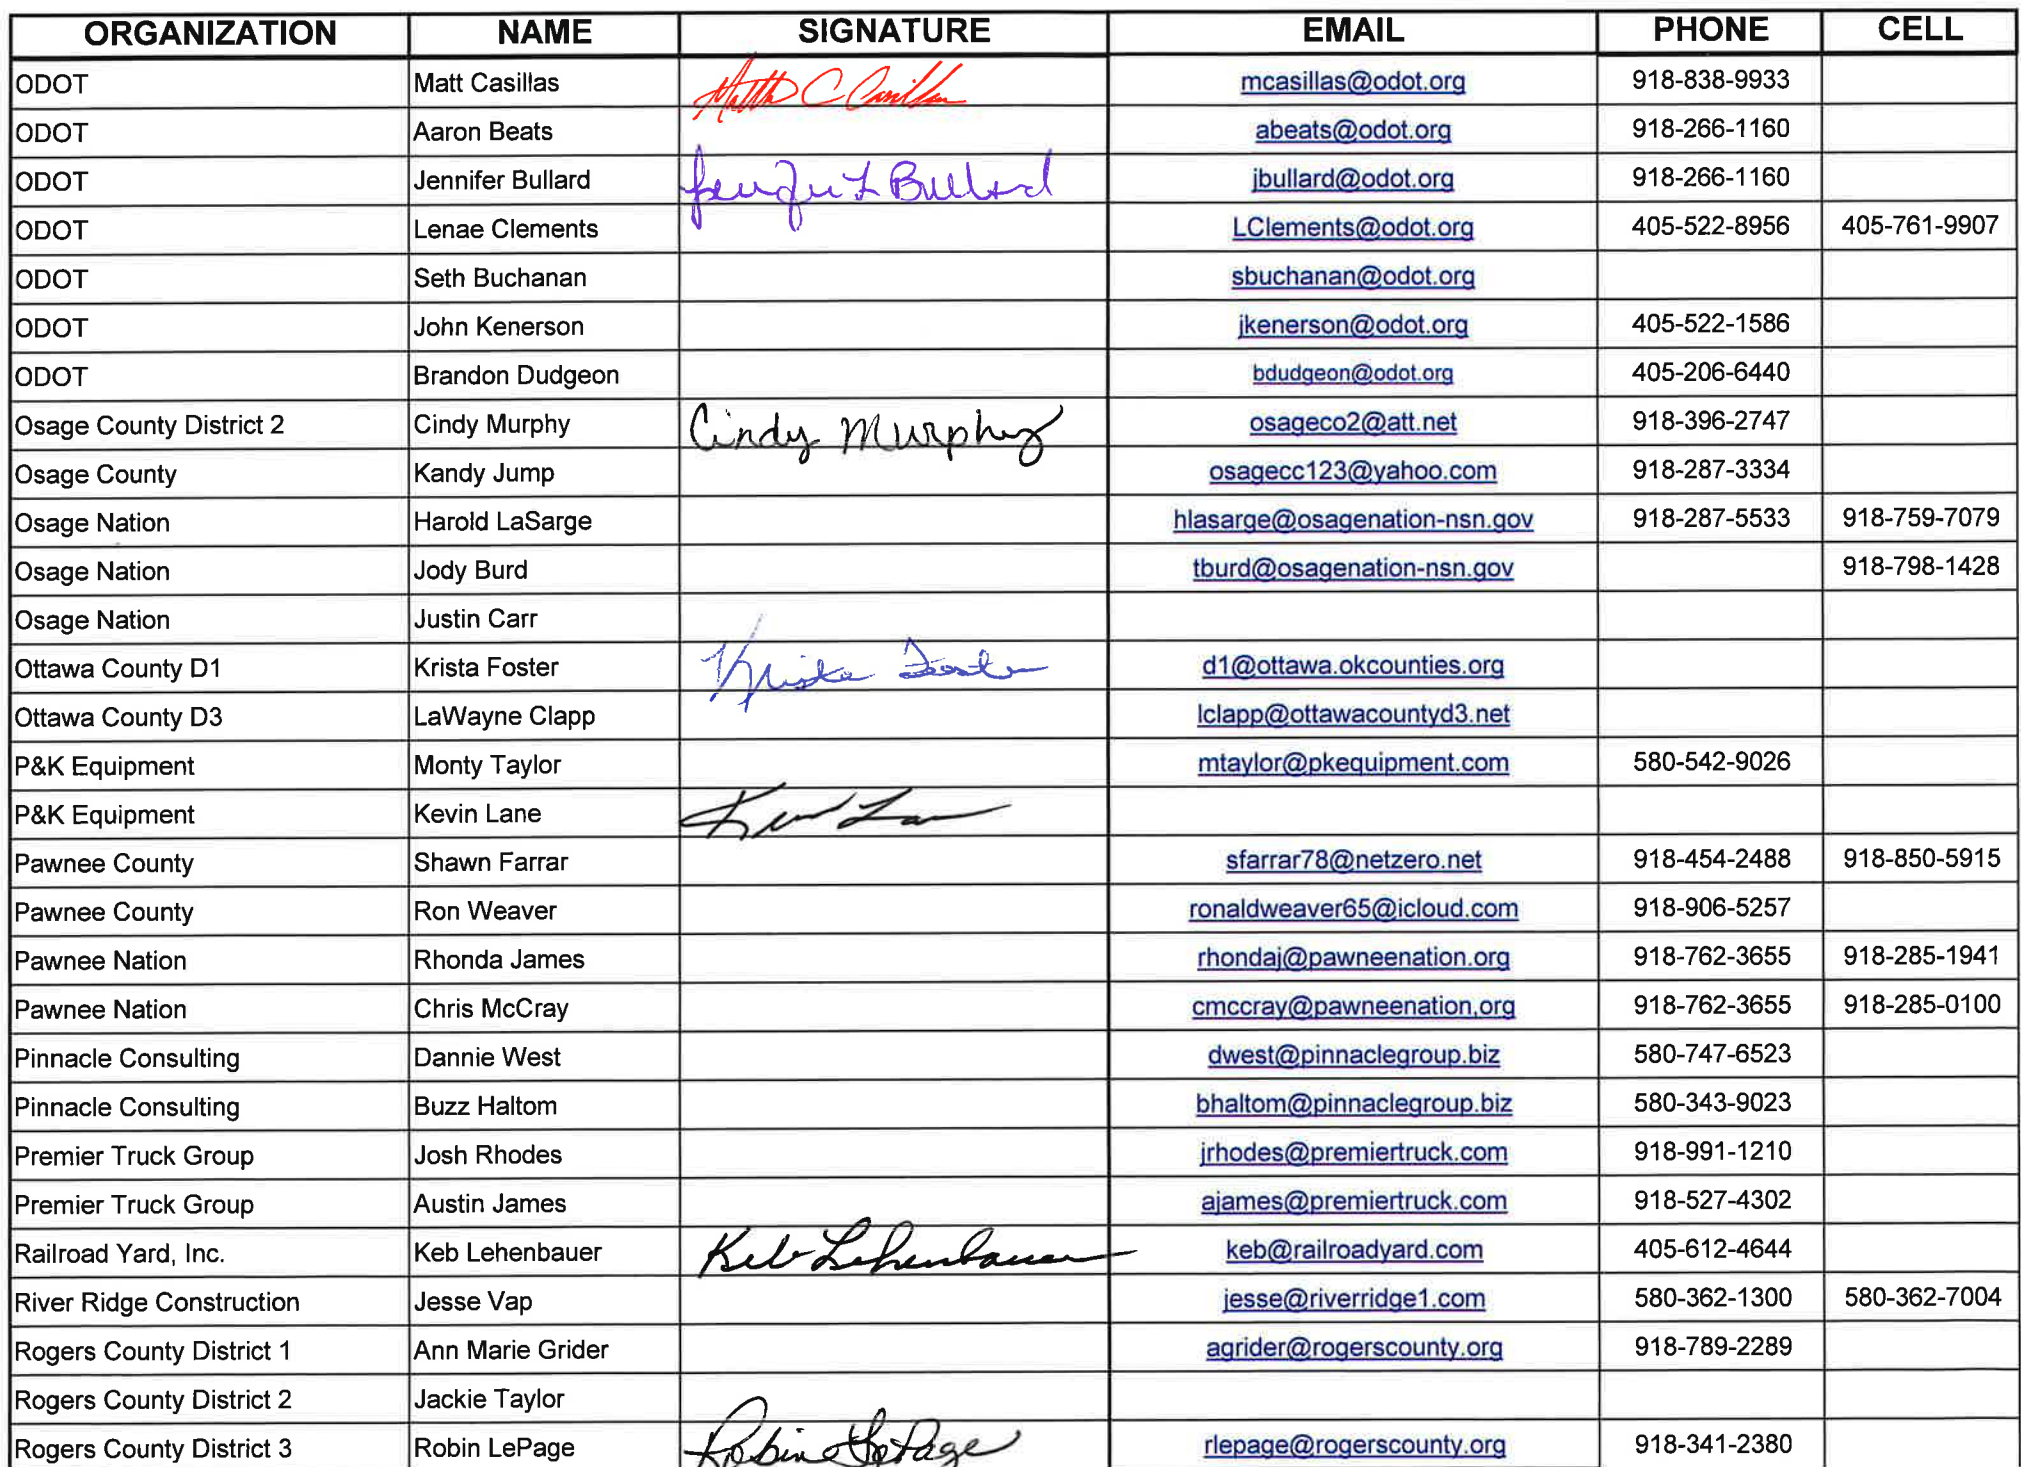 ORGANIZATION NAME SIGNATURE EMAIL PHONE CELL
ODOT Matt Casillas Matth C Casillas mcasillas@odot.org 918-838-9933
ODOT Aaron Beats abeats@odot.org 918-266-1160
ODOT Jennifer Bullard Jennifer L Bullard jbullard@odot.org 918-266-1160
ODOT Lenae Clements LClements@odot.org 405-522-8956 405-761-9907
ODOT Seth Buchanan sbuchanan@odot.org
ODOT John Kenerson jkenerson@odot.org 405-522-1586
ODOT Brandon Dudgeon bdudgeon@odot.org 405-206-6440
Osage County District 2 Cindy Murphy Cindy Murphy osageco2@att.net 918-396-2747
Osage County Kandy Jump osagecc123@yahoo.com 918-287-3334
Osage Nation Harold LaSarge hlasarge@osagenation-nsn.gov 918-287-5533 918-759-7079
Osage Nation Jody Burd tburd@osagenation-nsn.gov 918-798-1428
Osage Nation Justin Carr
Ottawa County D1 Krista Foster Krista Foster d1@ottawa.okcounties.org
Ottawa County D3 LaWayne Clapp lclapp@ottawacountyd3.net
P&K Equipment Monty Taylor mtaylor@pkequipment.com 580-542-9026
P&K Equipment Kevin Lane Kevin Lane
Pawnee County Shawn Farrar sfarrar78@netzero.net 918-454-2488 918-850-5915
Pawnee County Ron Weaver ronaldweaver65@icloud.com 918-906-5257
Pawnee Nation Rhonda James rhondaj@pawneenation.org 918-762-3655 918-285-1941
Pawnee Nation Chris McCray cmccray@pawneenation,org 918-762-3655 918-285-0100
Pinnacle Consulting Dannie West dwest@pinnaclegroup.biz 580-747-6523
Pinnacle Consulting Buzz Haltom bhaltom@pinnaclegroup.biz 580-343-9023
Premier Truck Group Josh Rhodes jrhodes@premiertruck.com 918-991-1210
Premier Truck Group Austin James ajames@premiertruck.com 918-527-4302
Railroad Yard, Inc. Keb Lehenbauer Keb Lehenbauer keb@railroadyard.com 405-612-4644
River Ridge Construction Jesse Vap jesse@riverridge1.com 580-362-1300 580-362-7004
Rogers County District 1 Ann Marie Grider agrider@rogerscounty.org 918-789-2289
Rogers County District 2 Jackie Taylor
Rogers County District 3 Robin LePage Robin LePage rlepage@rogerscounty.org 918-341-2380